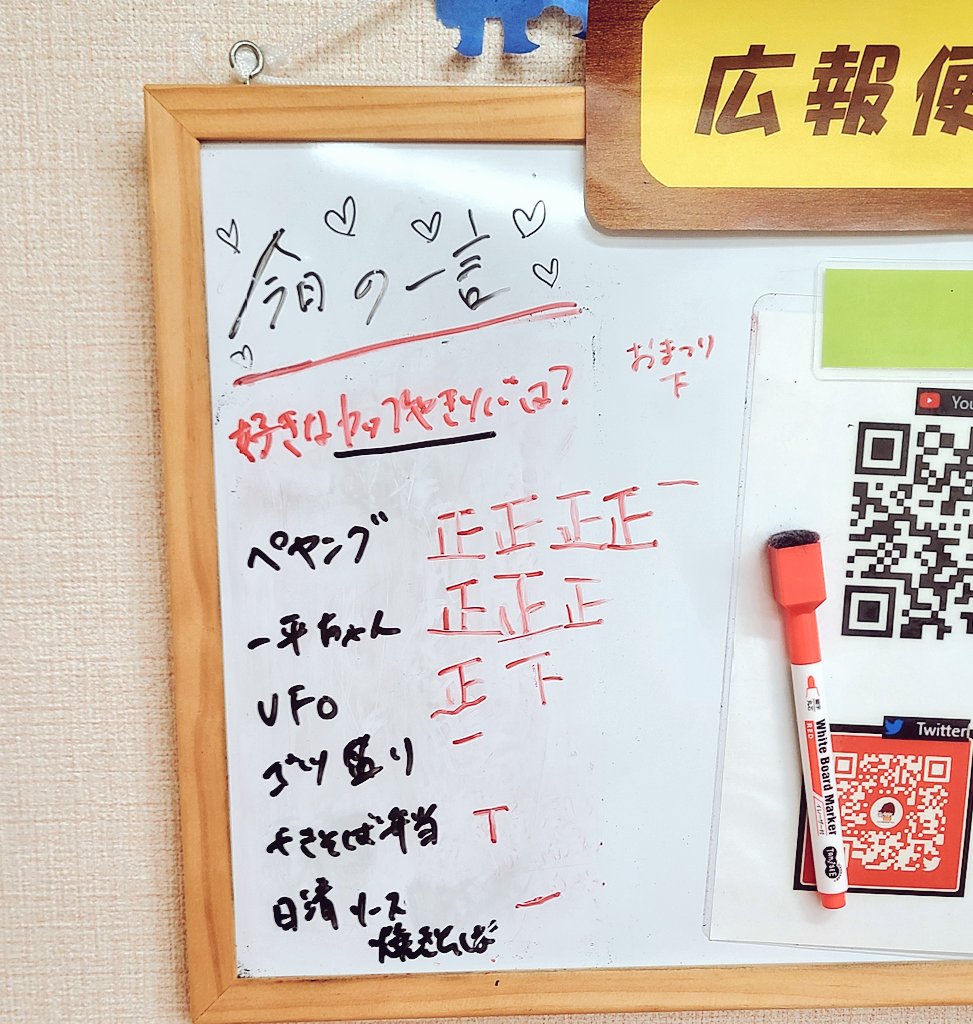 広報便
今日の一言
好きなカップやきソバは?
おまつり
下
ペヤング 正正正正一
一平ちゃん 正正正
UFO 正下
一
ゴツ盛り
やきそば弁当 T
日清ソース 一
焼きそば
You
Twitter
White Board Marker
RED